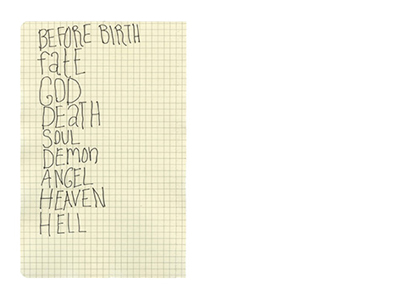 BEFORE BIRTH
fatE
GOD
DEatH
SOUL
DEmon
ANGEL
HEAVEN
HELL